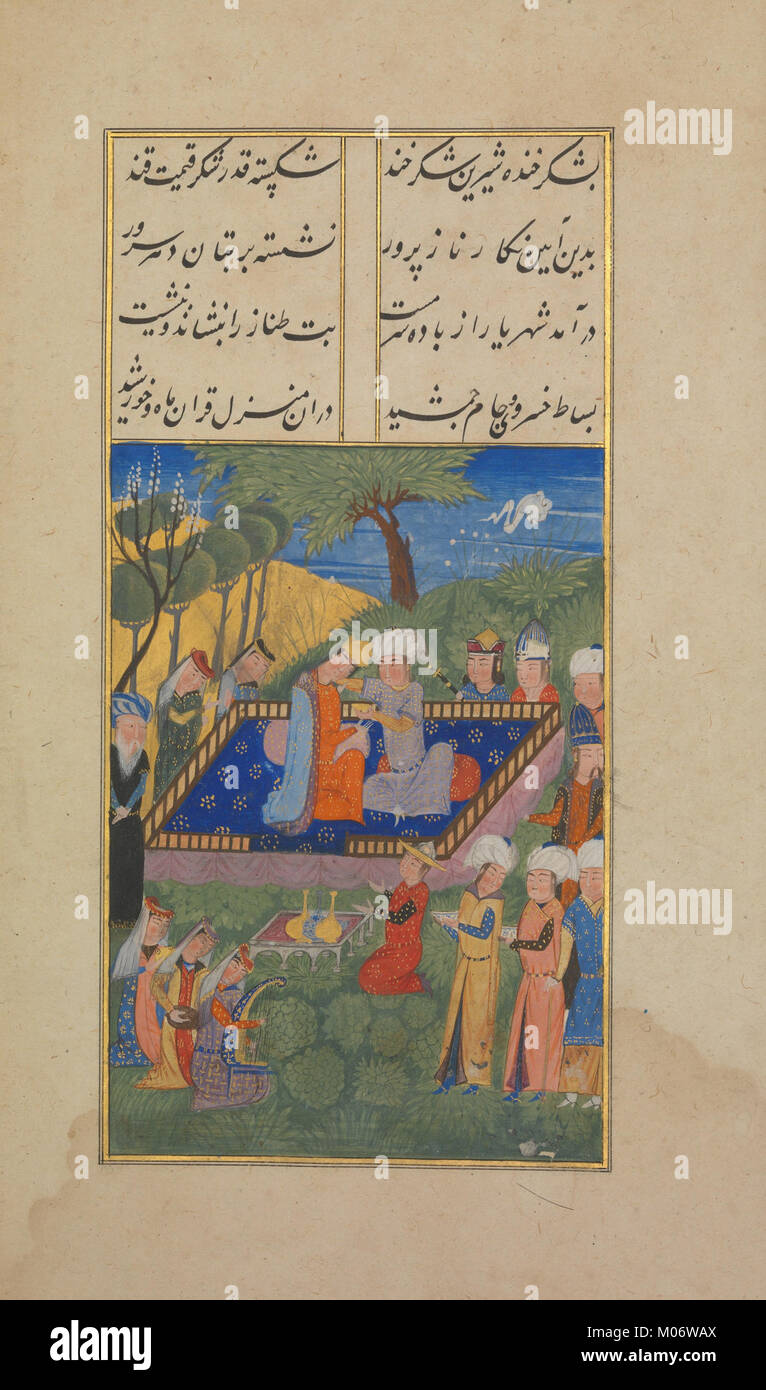 بشکر خنده شیرین شکر خند شکسته قدر شکر قیمت قند
بدین آیین نگار ناز پرور نشسته بر بتان دهر سرور
در آمد شهریار از باده سرمست بت طناز را بنشاند و بنشست
بساط خسروی و جام جمشید در ان منزل قران ماه و خورشید
alamy
alamy stock photo
M06WAX
www.alamy.com